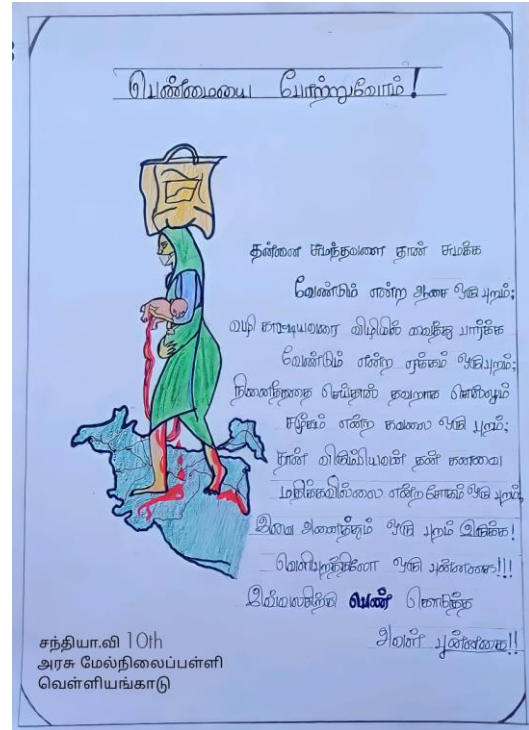 பெண்மையை போற்றுவோம்!
தன்னை சுமந்தவளை தான் சுமக்க
வேண்டும் என்ற ஆசை ஒரு புறம்;
வழி காட்டியவரை விழியில் வைத்து பார்க்க
வேண்டும் என்ற ஏக்கம் ஒருபுறம்;
நினைத்ததை செய்தால் தவறாக சொல்லும்
சமூகம் என்ற கவலை ஒரு புறம்;
தான் விரும்பியவன் தன் கனவை
மதிக்கவில்லை என்ற சோகம் ஒரு புறம்
இவை அனைத்தும் ஒரு புறம் இருக்க!
வெளிபுறத்திலோ ஒரு புன்னகை!!!
இவ்வுலகிற்கு பெண் கொடுத்த
அவள் புன்னகை!!
சந்தியா.வி 10th
அரசு மேல்நிலைப்பள்ளி
வெள்ளியங்காடு